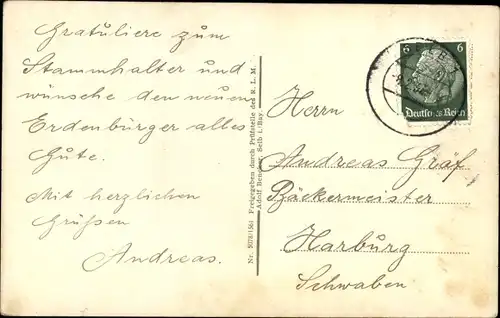 Gratuliere zum
Stammhalter und
wünsche den neuen
Erdenbürger alles
Gute.
Mit herzlichen
Grüßen
Andreas.
Nr. 5078/1564 Freigegeben durch Prüfstelle des R. L. M.
Adolf Selb i./Bay.
6 6
Deutsches Reich
Herrn
Andreas Gräf
Bäckermeister
Harburg
Schwaben